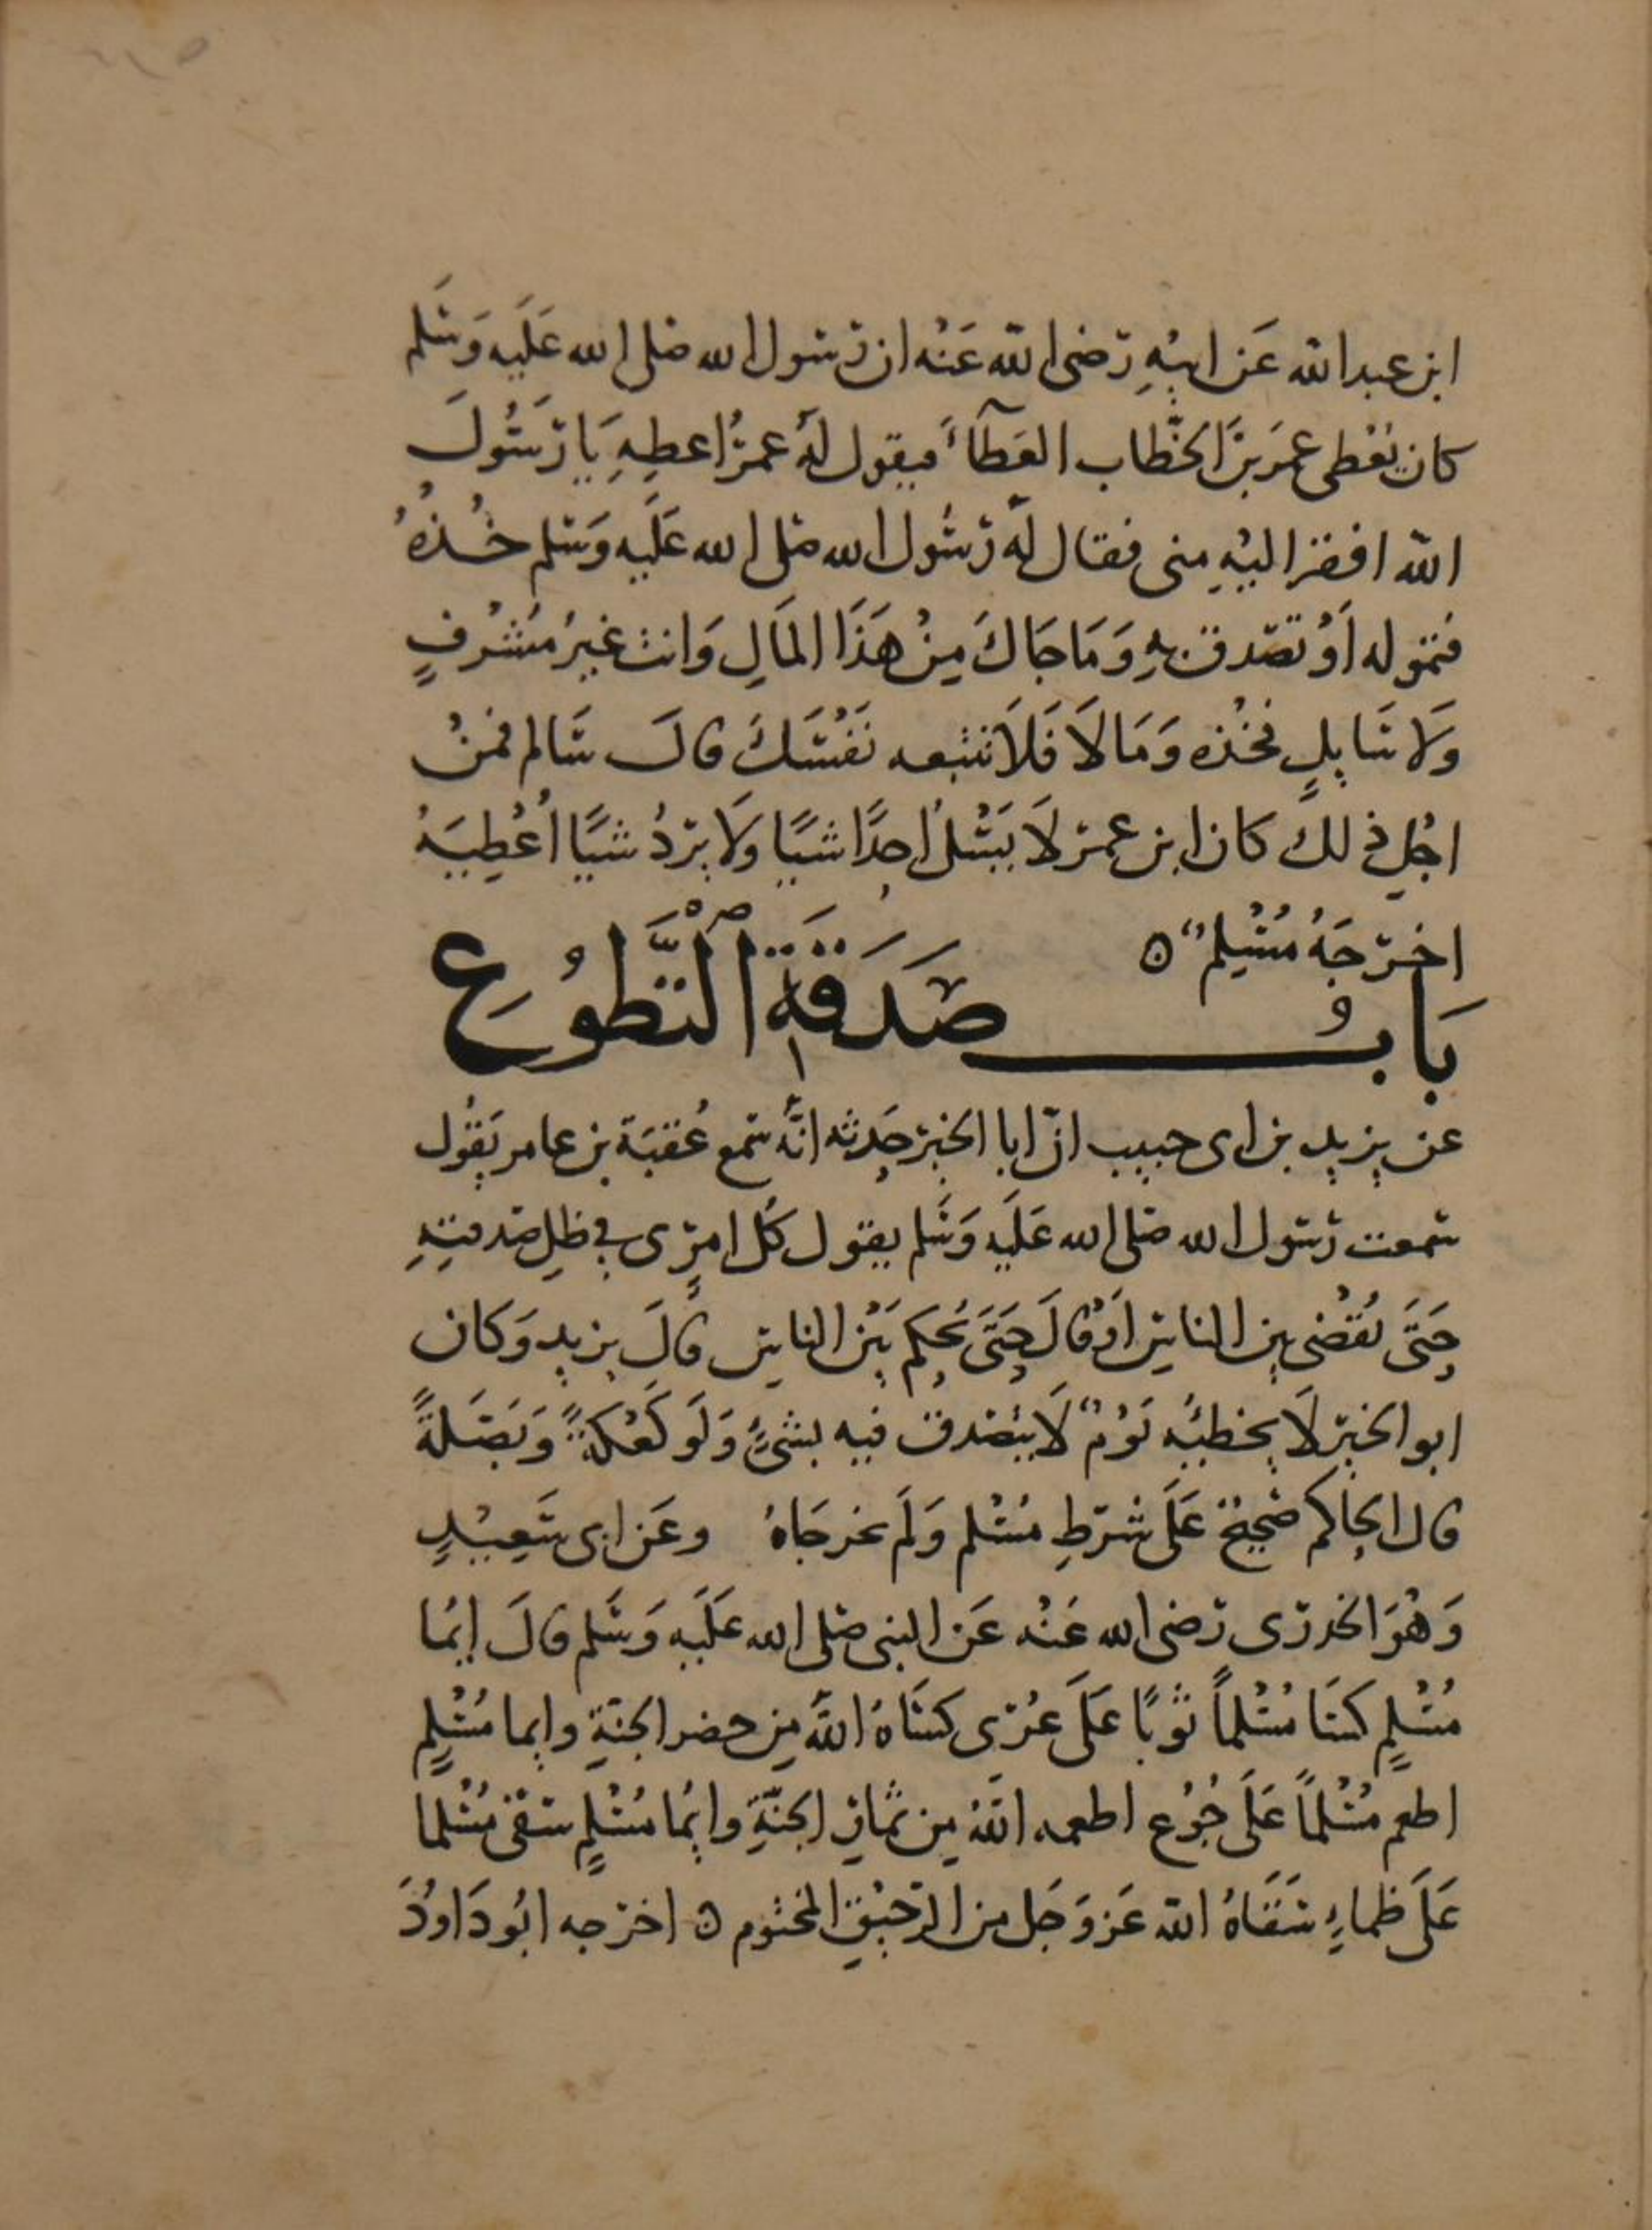 ابن عبد الله عَن ابيْهِ رَضى الله عَنْه ان رَسول الله صَلى الله عَلَيه وَسَلم
كان يُعْطى عمَر بنَ الخَّطاب العَطآءَ فيقول لهُ عمرُ اعطِهِ يَا رَسُولَ
الله افقر اليْهِ مِنى فقال لهُ رَسُول الله صَلى الله عَلَيه وَسَلم خُذهُ
فتموله اَوْ تصَدق بهِ وَمَا جَاكَ مِنْ هَذَا المَالِ وَانت غيرُ مُشْرفٍ
وَلا سَايلٍ فخُذه وَمَا لَا فَلَا تتبعه نَفْسَكَ قالَ سَالم فمنْ
اجْلِ ذلكَ كان ابن عمر لَا يَسْلُ احَدًا شيًا وَلَا يردُ شيًا اُعْطِيَهُ
اخرَجَهُ مُسْلِم
بَابُ صَدَقَةِ التَّطوُعِ
عن يزيد بن ابى حبيب انّ ابا الخير حَدثه انَّه سَمع عُقبَة بن عامر يَقُول
سَمعت رَسول الله صَلى الله عَلَيه وَسَلم يقول كُل امرٍى في ظلِ صَدقتِهِ
حَتَّى يُقضْى بين الناسِ اَوْ قالَ حَتَّى يُحكم بَيْن الناسِ قالَ يزيد وَكان
ابو الخير لَا يخطيُه يَوْمٌ لَا يتصَدق فيه بشىءٍ وَلَو كَعْكةً وَبَصَلةً
قال الحاكم صَحيحٌ عَلَى شرطِ مُسْلم وَلَم يخرجَاهُ وعَن ابى سَعِيْدٍ
وَهُوَ الخدرَى رَضى الله عَنْه عَن النبى صَلى الله عَلَيه وَسَلم قالَ ايُما
مُسْلمٍ كسَا مُسْلماً ثوْبًا عَلَى عُرْى كسَاهُ اللهُ من حضر الجنةِ وايما مُسْلمٍ
اطعم مُسْلماً عَلَى جُوْع اطعمه اللهُ من ثمارِ الجنّةِ وايُما مُسْلمٍ سَقى مُسْلما
عَلَى ظماءٍ سَقَاهُ الله عَز وَجَل من الرَحيْقِ المختوم اخرَجه ابُو دَاوُدَ